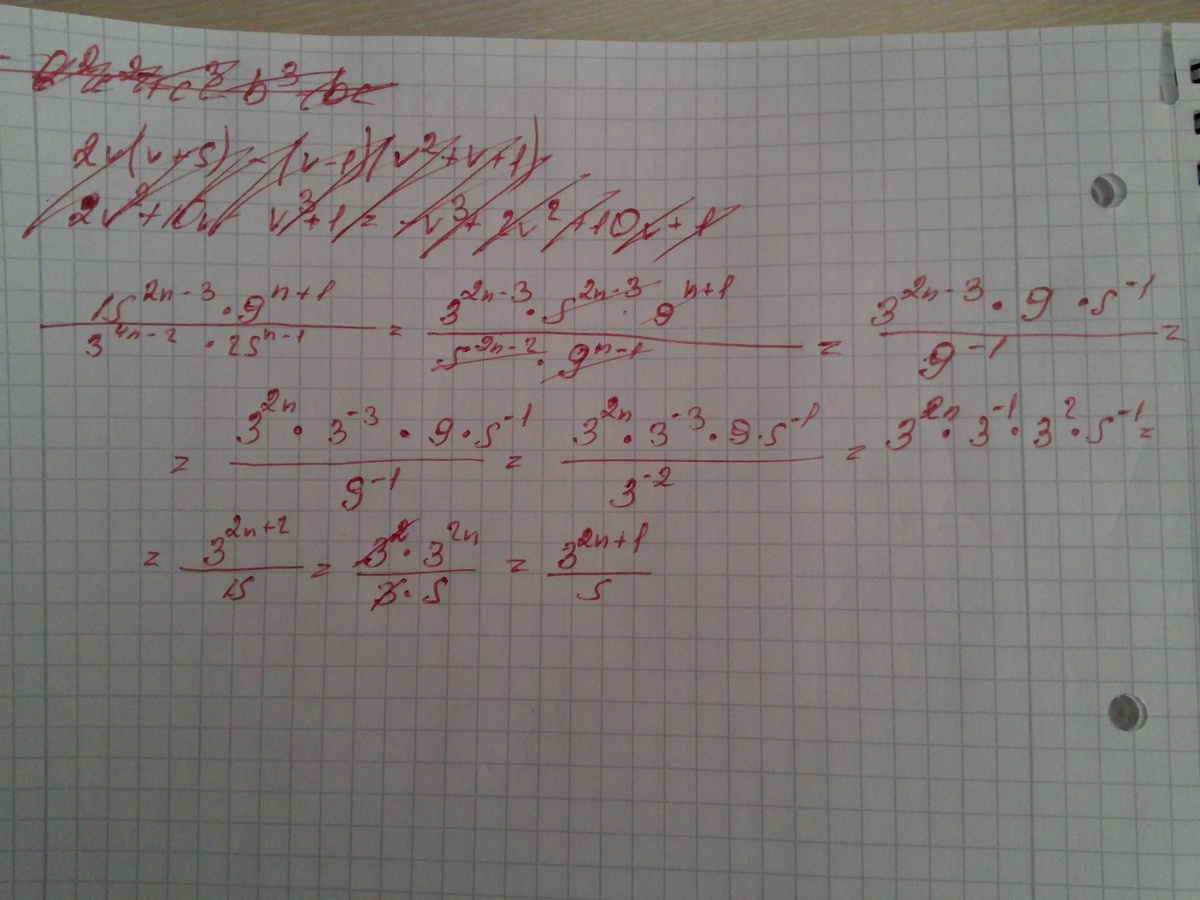 2v(v+5) - (v-1)(v²+v+1)
2v²+10v - v³+1 = -v³+2v²+10v+1
15^{2n-3}·9^{n+1} / 3^{4n-2}·25^{n-1} = 3^{2n-3}·5^{2n-3}·9^{n+1} / 5^{2n-2}·9^{n-1} = 3^{2n-3}·9·5^{-1} / 9^{-1} =
= 3^{2n}·3^{-3}·9·5^{-1} / 9^{-1} = 3^{2n}·3^{-3}·9·5^{-1} / 3^{-2} = 3^{2n}·3^{-1}·3^{2}·5^{-1} =
= 3^{2n+2} / 15 = 3^{2}·3^{2n} / 3·5 = 3^{2n+1} / 5